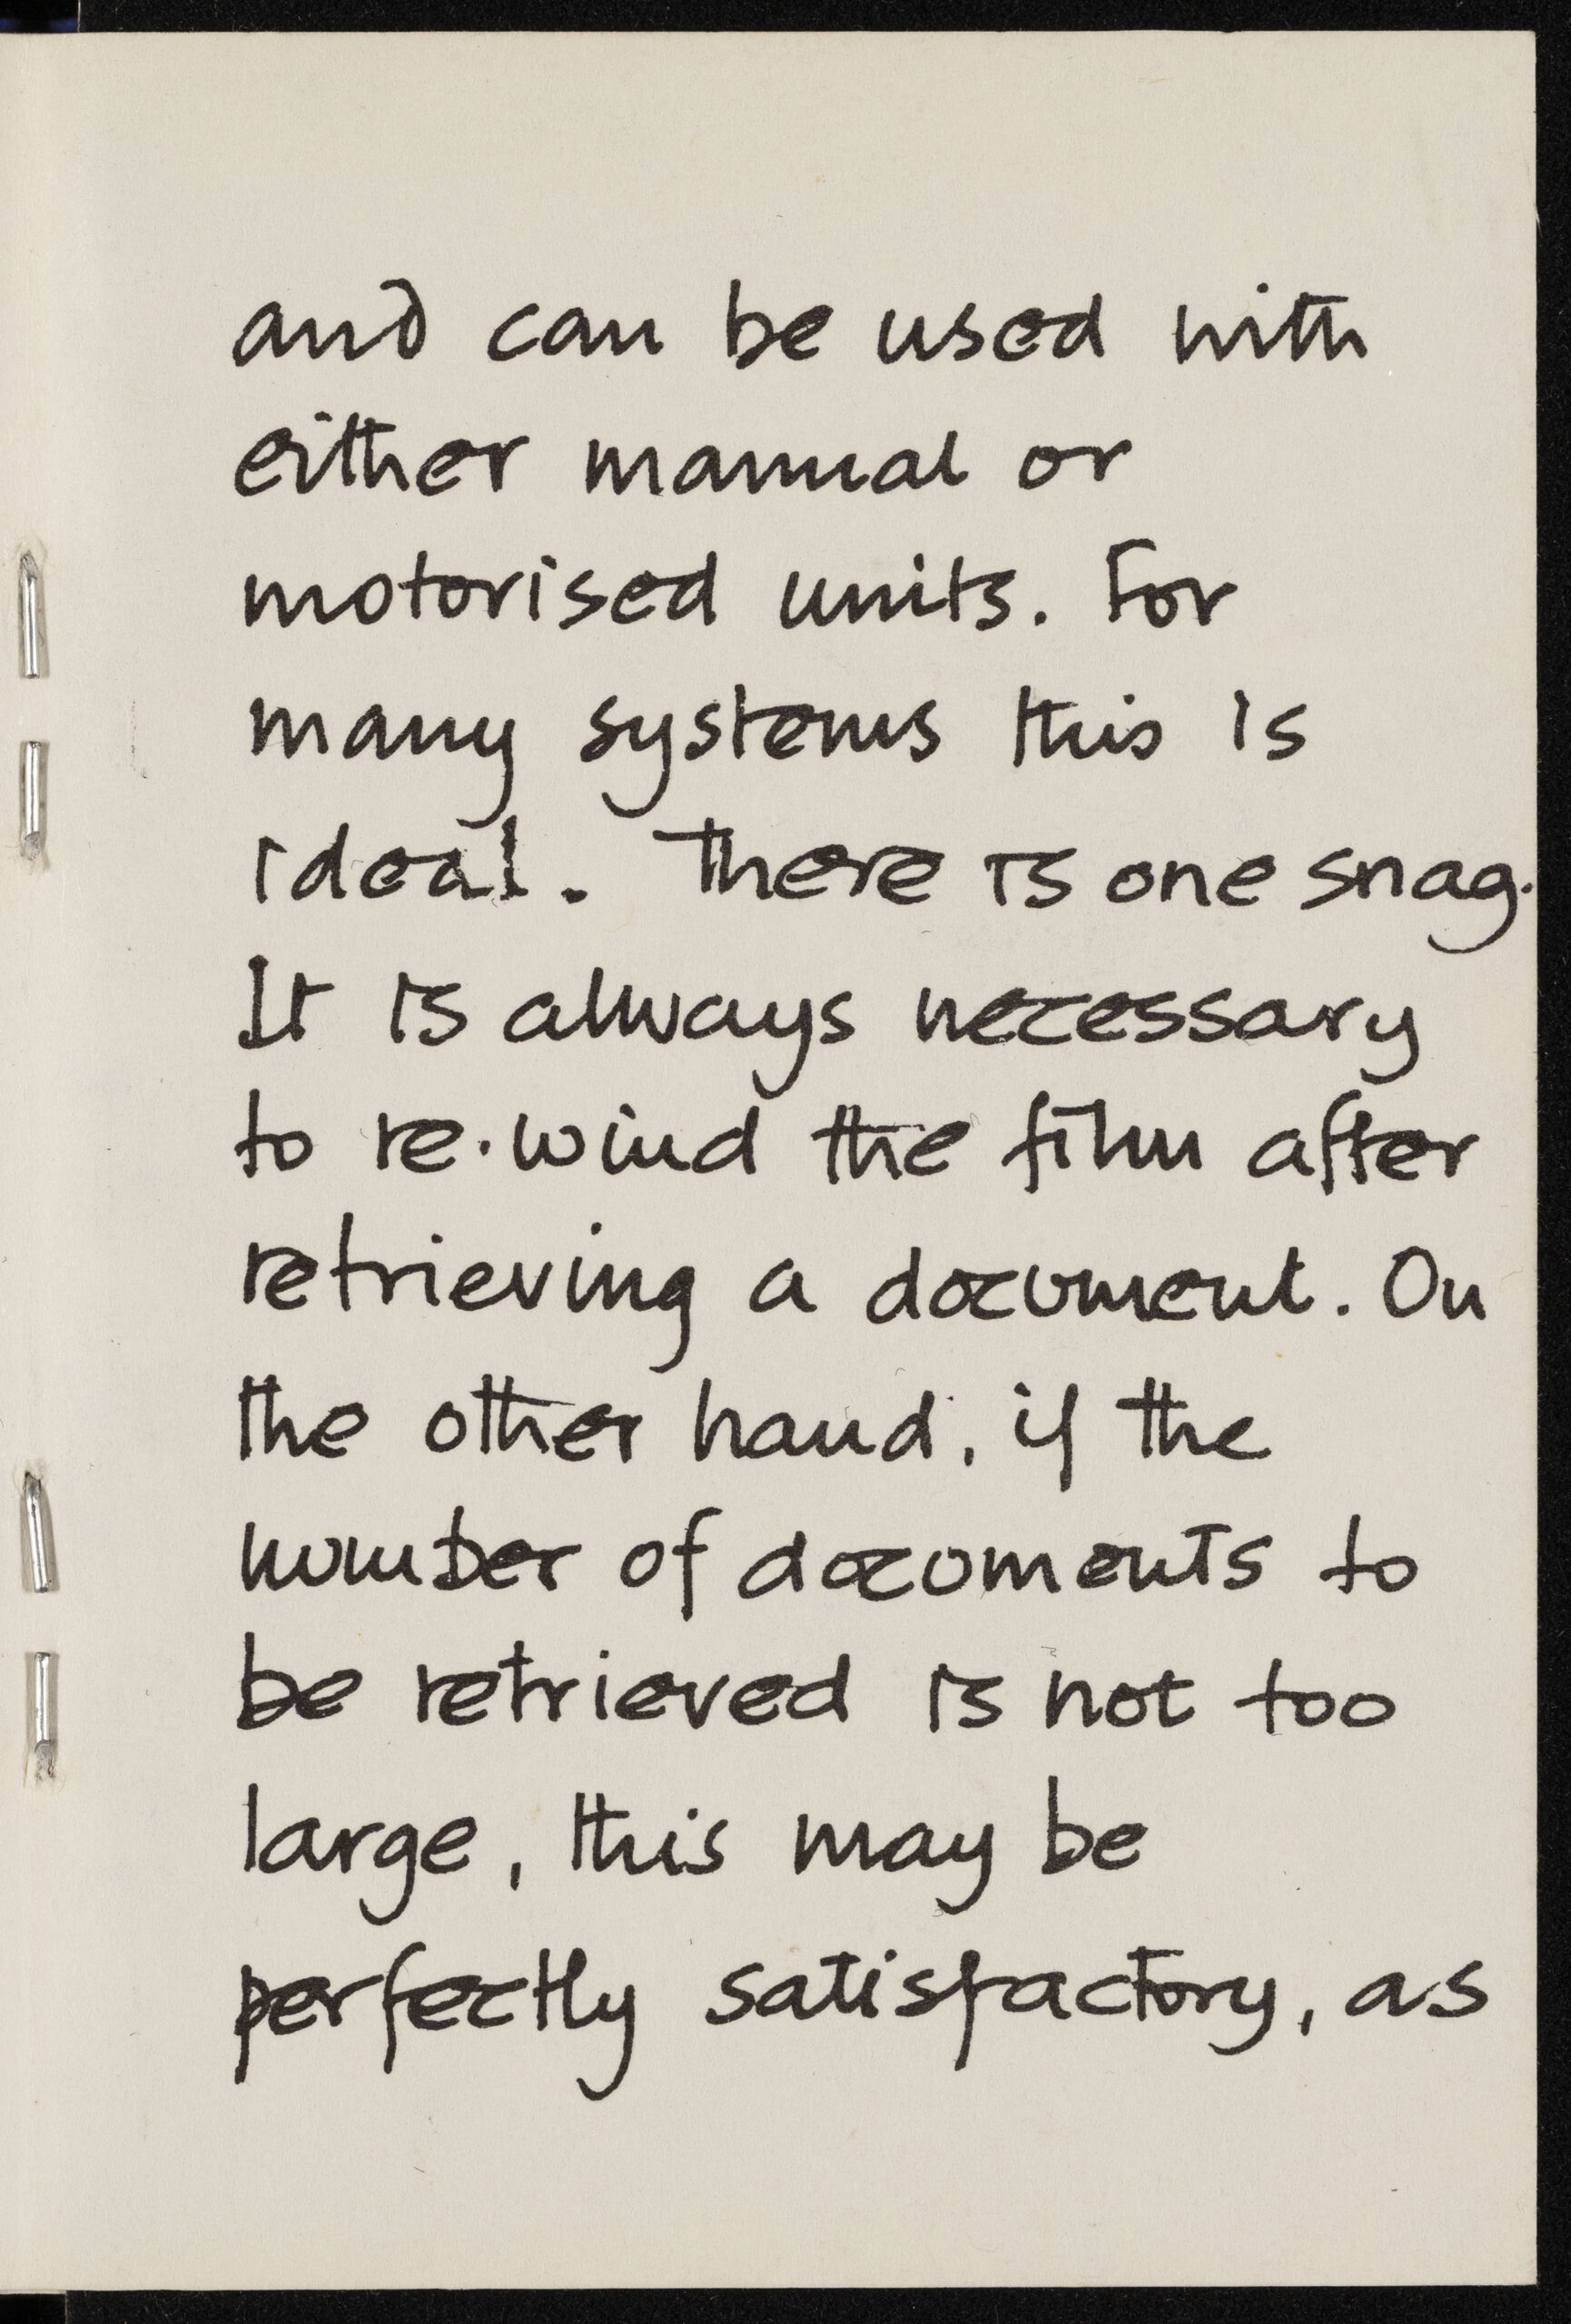 and can be used with
either manual or
motorised units. For
many systems this is
ideal. There is one snag.
It is always necessary
to re-wind the film after
retrieving a document. On
the other hand, if the
number of documents to
be retrieved is not too
large, this may be
perfectly satisfactory, as